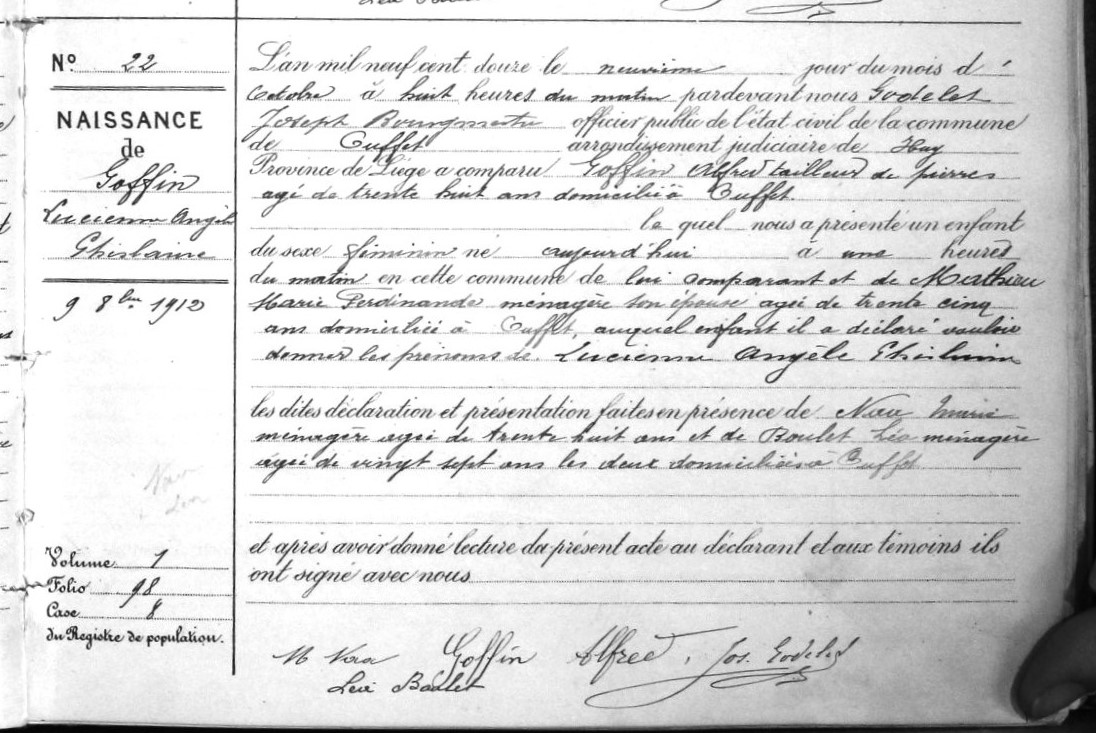 Nº 22
NAISSANCE
de
Goffin
Lucienne Angèle
Ghislaine
9 8bre 1912
Volume 1
Folio 98
Case 8
du Registre de population.
L'an mil neuf cent douze le neuvième jour du mois d'
Octobre à huit heures du matin pardevant nous Godelet
Joseph Bourgmestre officier public de l'état civil de la commune
de Ouffet arrondissement judiciaire de Huy
Province de Liége a comparu Goffin Alfred tailleur de pierres
agé de trente huit ans domicilié à Ouffet
le quel nous a présenté un enfant
du sexe féminin né aujourd'hui à une heures
du matin en cette commune de lui comparant et de Mathieu
Marie Ferdinande ménagère son épouse agée de trente cinq
ans domiciliée à Ouffet, auquel enfant il a déclaré vouloir
donner les prénoms de Lucienne Angèle Ghislaine
les dites déclaration et présentation faites en présence de Marie
ménagère agée de trente huit ans et de Boulet Léa ménagère
agée de vingt sept ans les deux domiciliées à Ouffet
et après avoir donné lecture du présent acte au déclarant et aux témoins ils
ont signé avec nous
M Goffin Alfred. Jos. Godelet
Léa Boulet